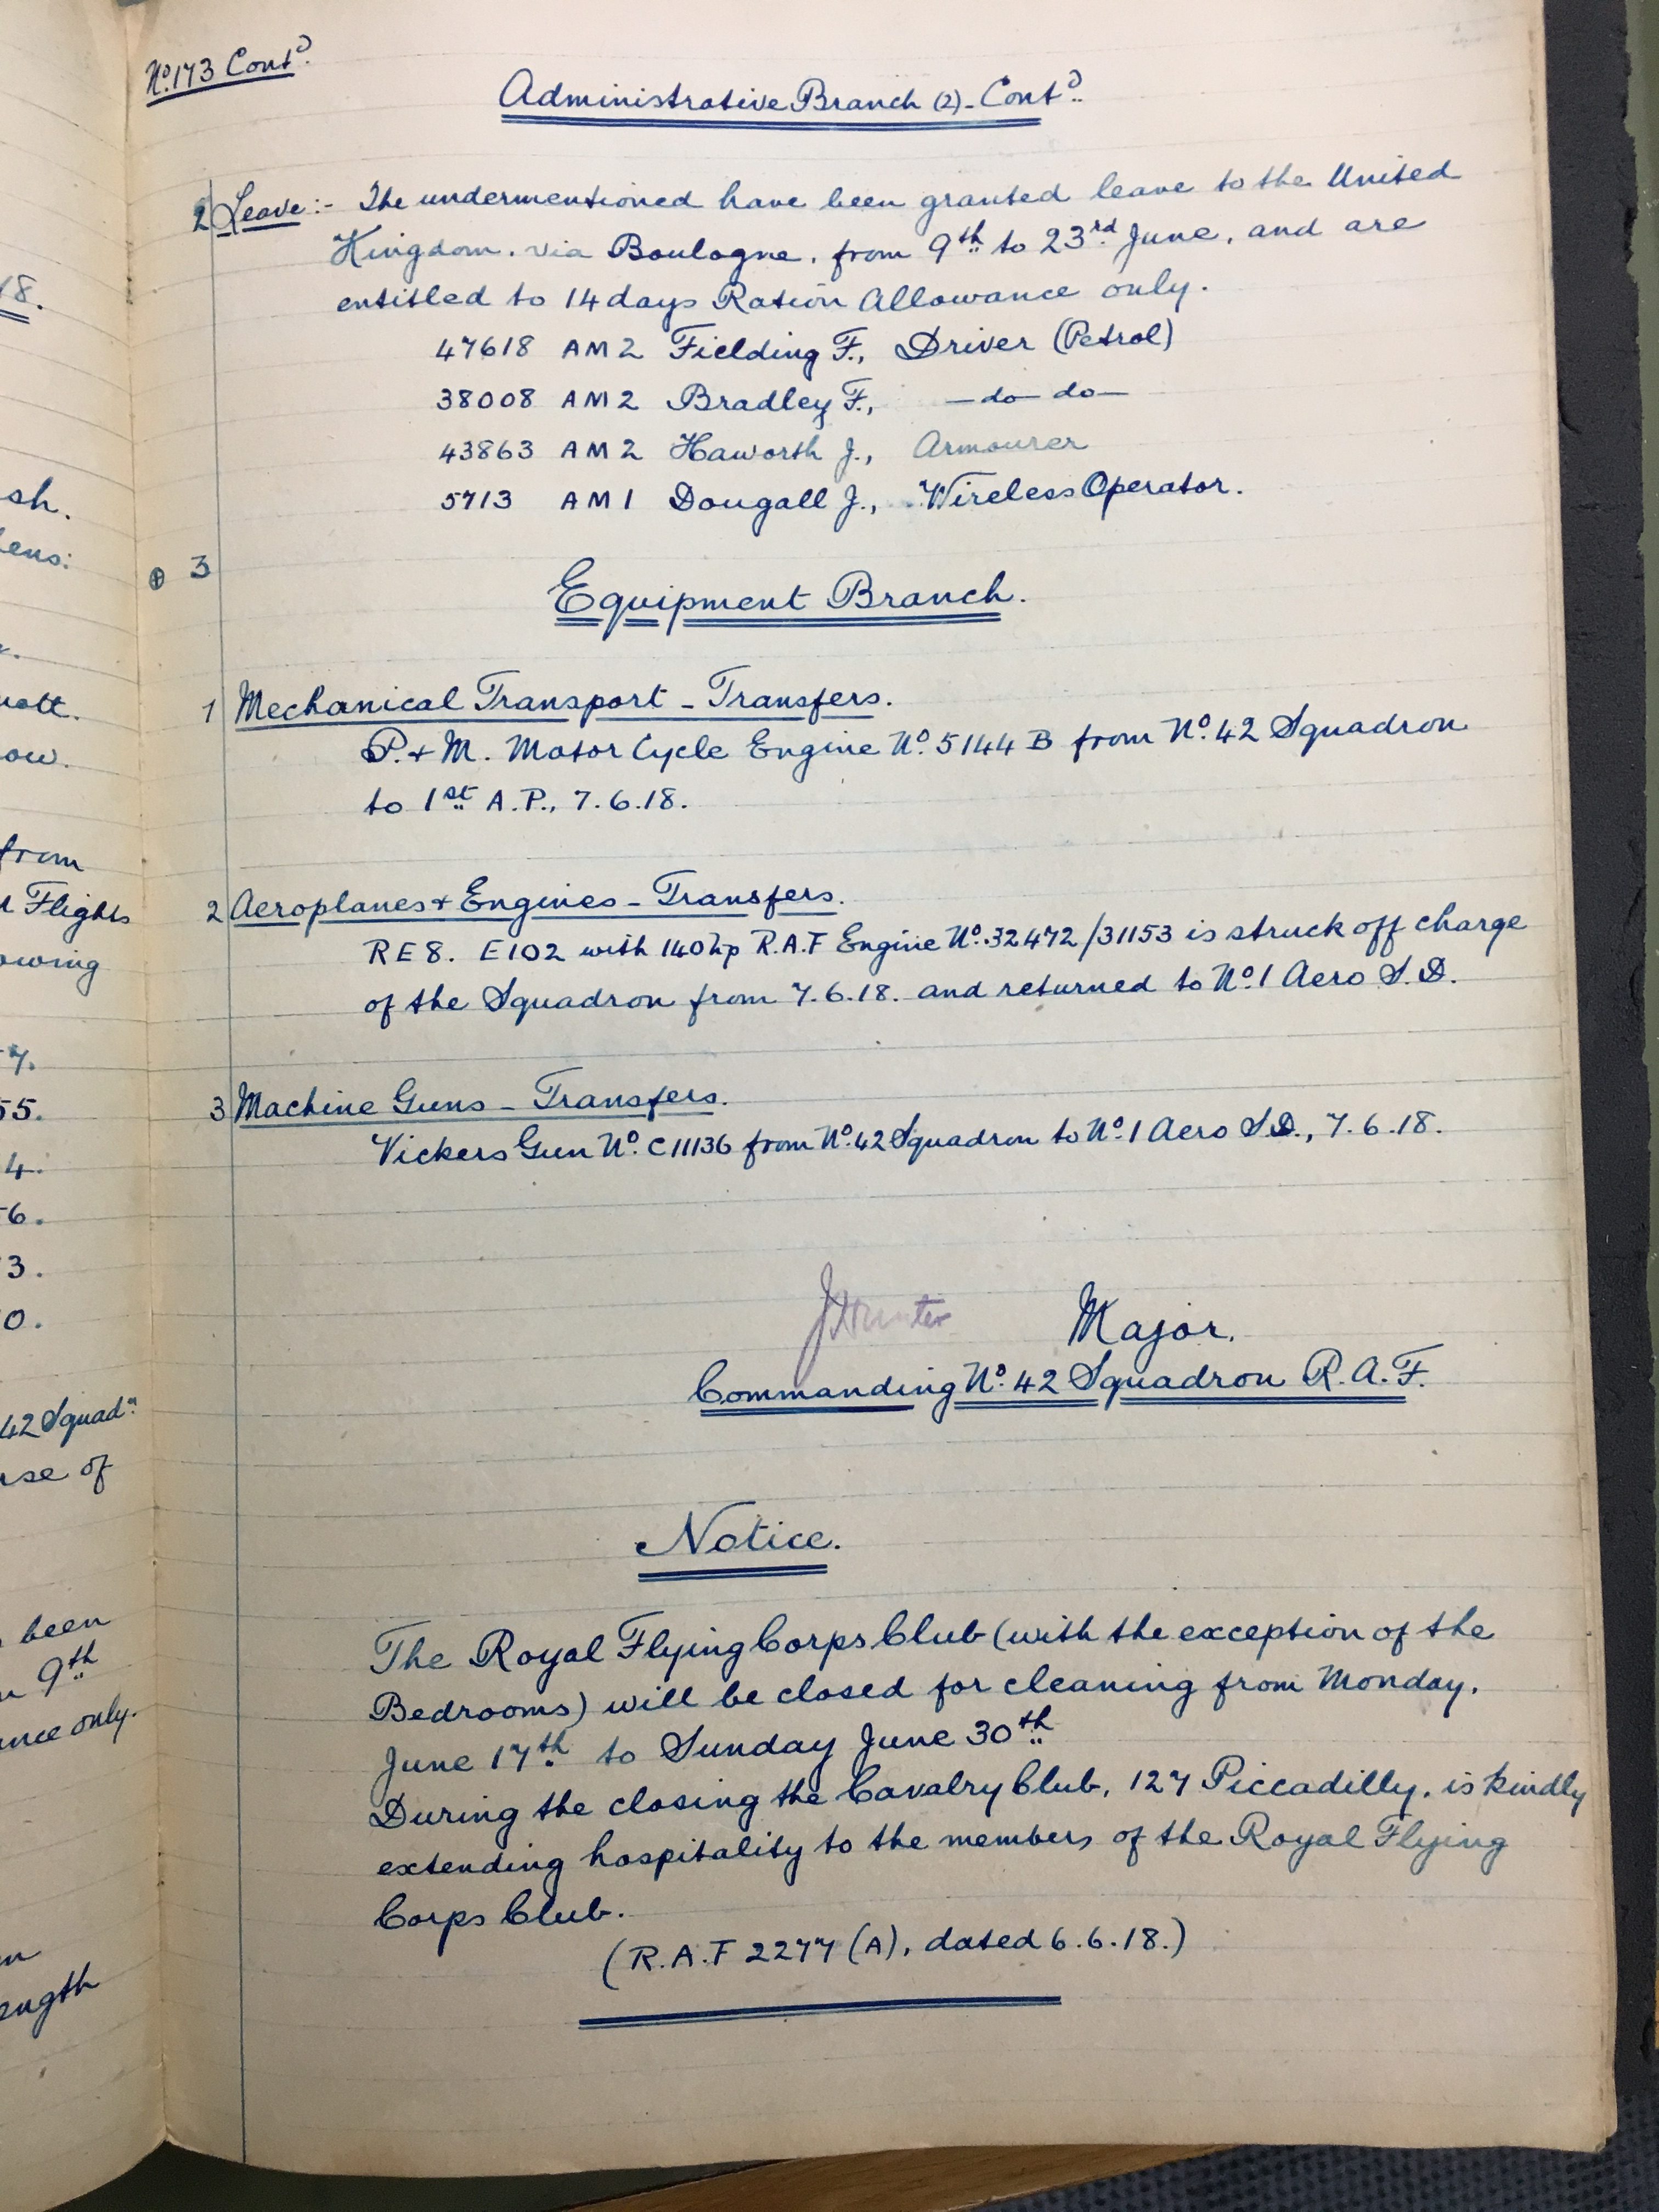 No. 173 Contd.
Administrative Branch (2) - Contd.
2 Leave :- The undermentioned have been granted leave to the United
Kingdom, via Boulogne, from 9th to 23rd June, and are
entitled to 14 days Ration Allowance only.
47618 AM2 Fielding F., Driver (Petrol)
38008 AM2 Bradley F., — do — do —
43863 AM2 Haworth J., Armourer
5713 AM1 Dougall J., Wireless Operator.
⊕ 3
Equipment Branch.
1 Mechanical Transport - Transfers.
P. + M. Motor Cycle Engine No. 5144 B from No. 42 Squadron
to 1st A.P., 7.6.18.
2 Aeroplanes + Engines - Transfers.
RE8. E102 with 140 hp R.A.F Engine No. 32472/31153 is struck off charge
of the Squadron from 7.6.18. and returned to No. 1 Aero S.D.
3 Machine Guns - Transfers.
Vickers Gun No. C11136 from No. 42 Squadron to No. 1 Aero S.D., 7.6.18.
Hunter Major.
Commanding No. 42 Squadron R.A.F.
Notice.
The Royal Flying Corps Club (with the exception of the
Bedrooms) will be closed for cleaning from Monday,
June 17th to Sunday June 30th
During the closing the Cavalry Club, 127 Piccadilly, is kindly
extending hospitality to the members of the Royal Flying
Corps Club.
(R.A.F 2277 (A), dated 6.6.18.)
18.
sh.
ow.
from
Flights
owing
7.
55.
4.
6.
3.
0.
42 Squadn.
of
been
9th
only.